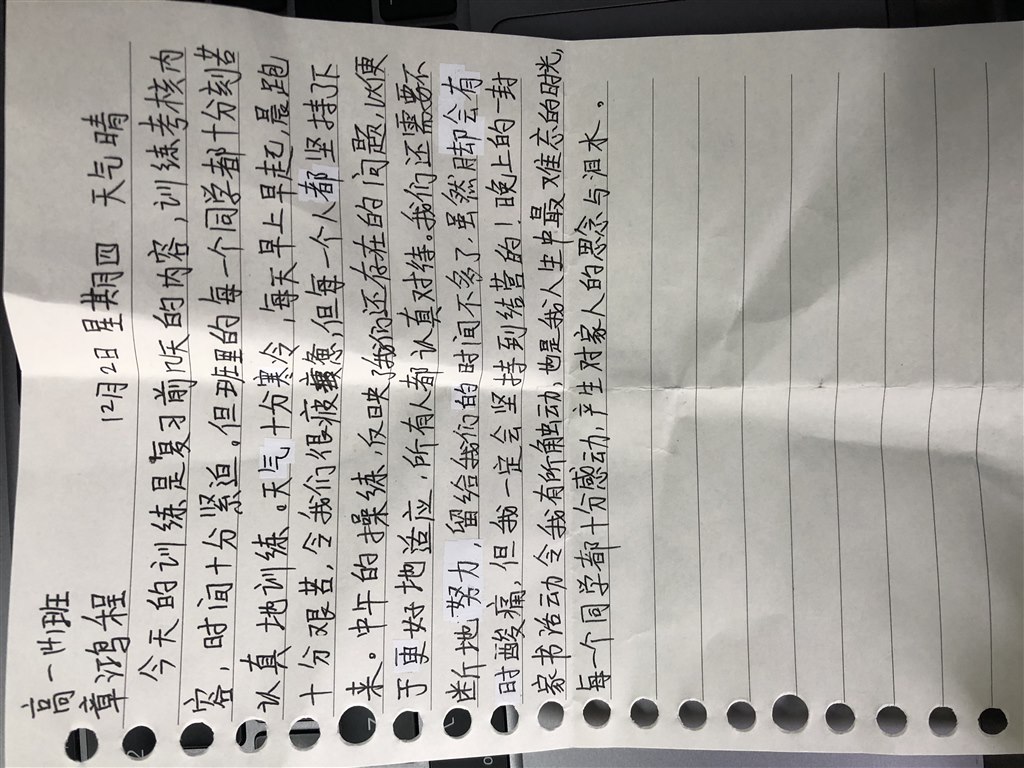 高一14班
章鸿程 12月2日 星期四 天气晴
今天的训练是复习前几天的内容，训练考核内
容，时间十分紧迫。但班里的每一个同学都十分刻苦
认真地训练。天气十分寒冷，每天早上早起，晨跑
十分艰苦，令我们很疲惫，但每一个人都坚持了下
来。中午的操练，反映了我们还存在的问题，以便
于更好地适应，所有人都认真对待。我们还需要不
断地努力，留给我们的时间不多了，虽然脚会有
时酸痛，但我一定会坚持到结营的！晚上的一封
家书活动令我有所触动，也是我人生中最难忘的时光，
每一个同学都十分感动，产生对家人的思念与泪水。